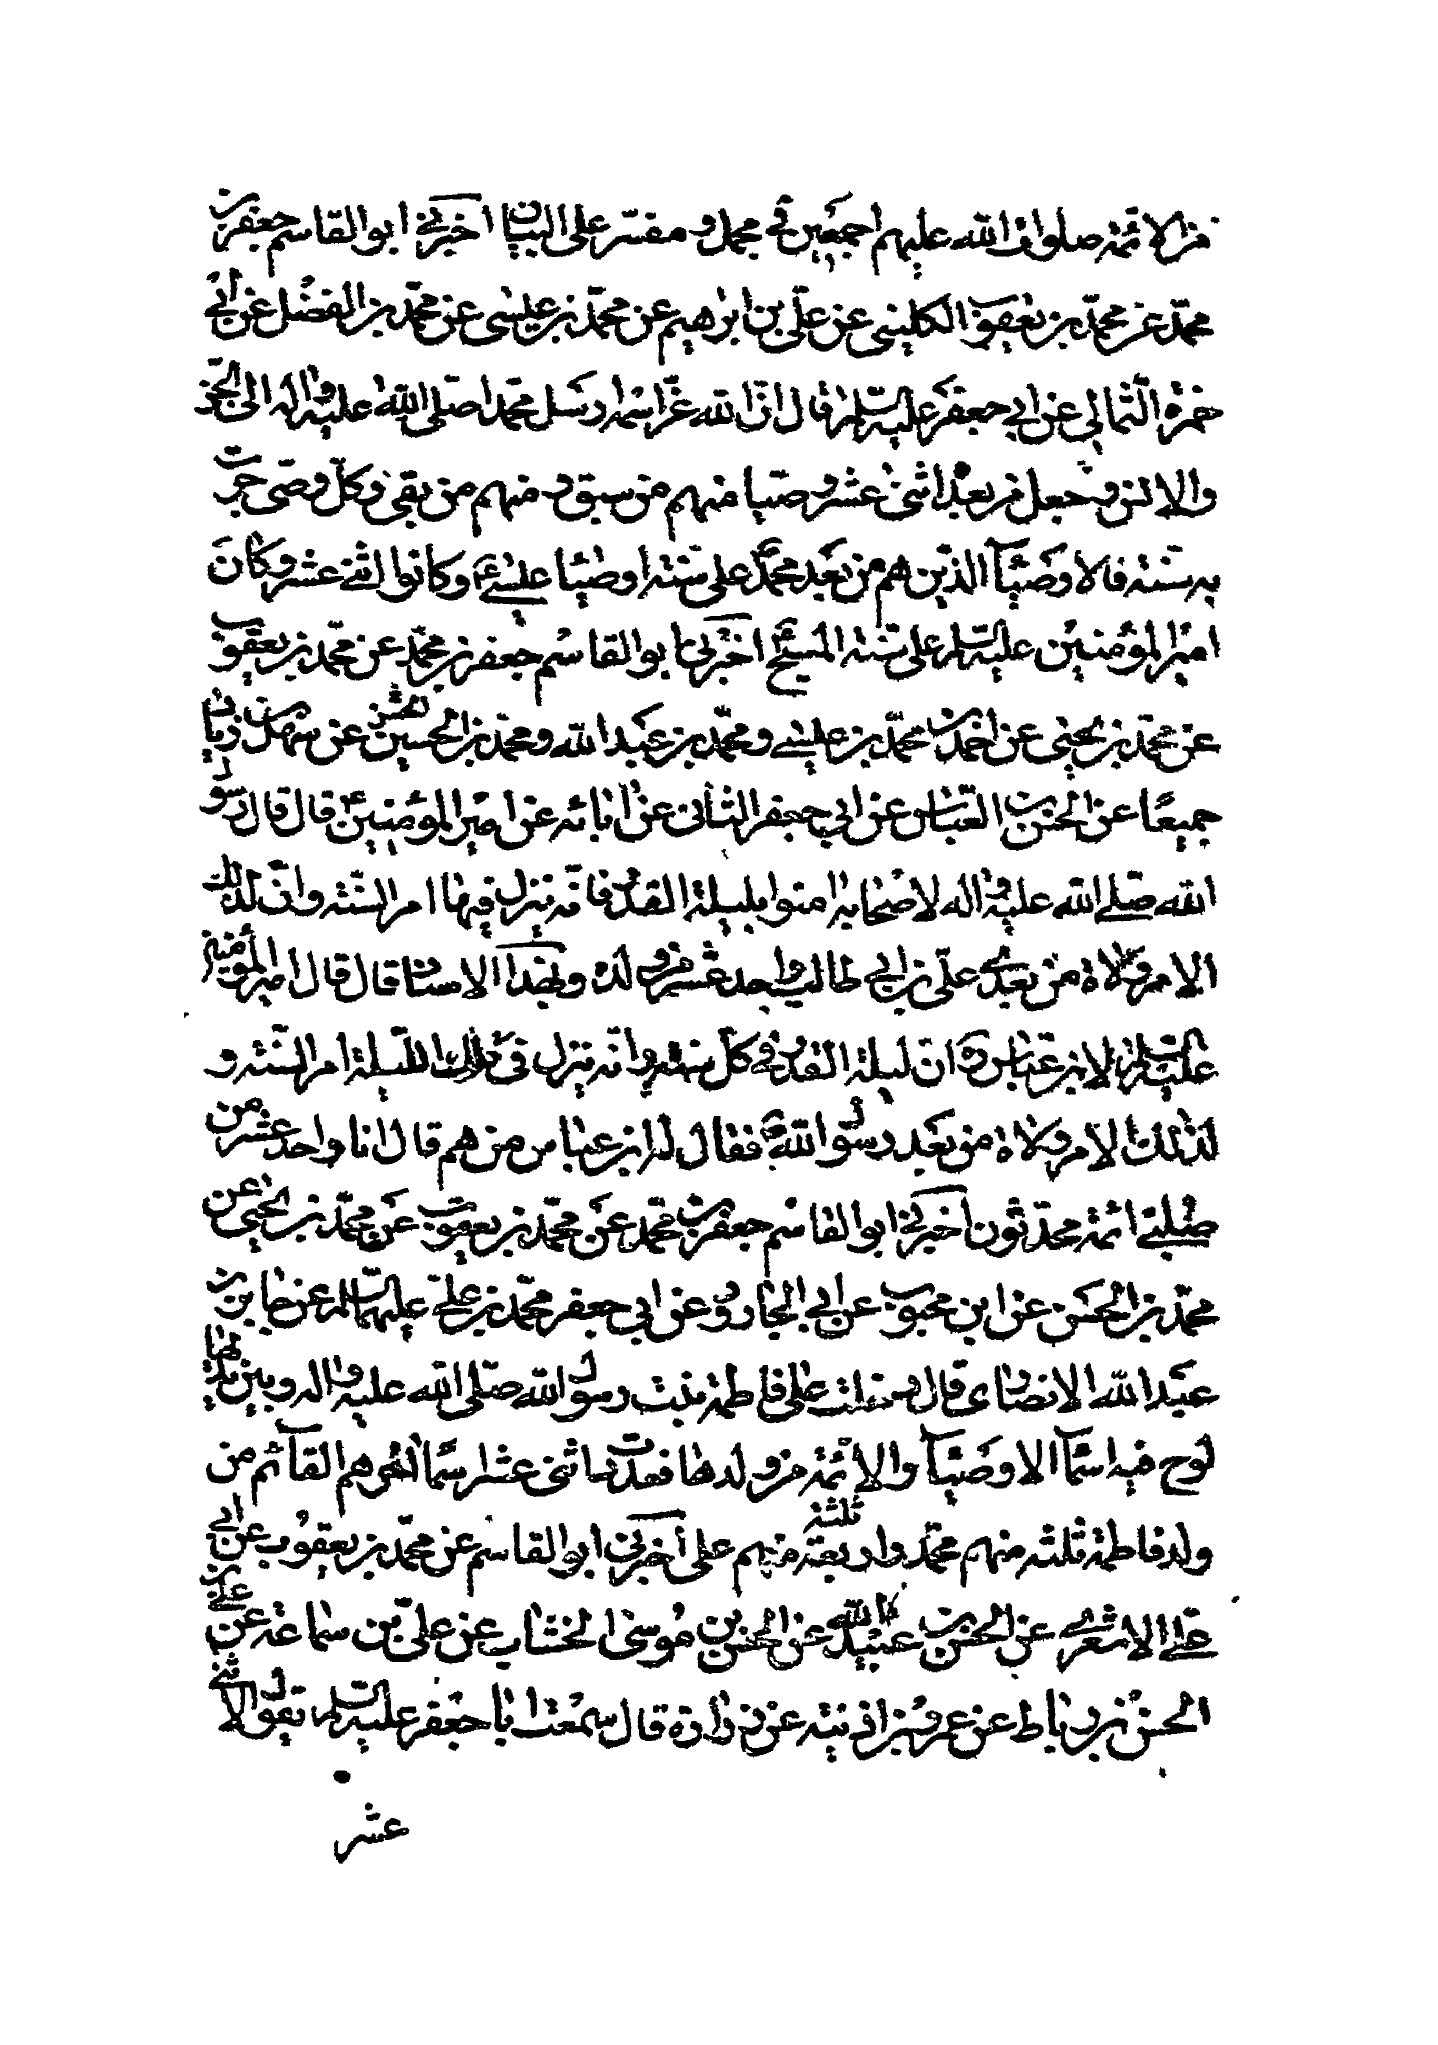 من الائمة صلوات الله عليهم اجمعين في مجمل ومفسر على البيان اخبرني ابو القاسم جعفر بن
محمد عن محمد بن يعقوب الكليني عن علي بن ابرهيم عن محمد بن عيسى عن محمد بن الفضل عن ابي
حمزة الثمالي عن ابي جعفر عليه السلم قال ان الله عز اسمه ارسل محمدا صلى الله عليه واله الى الجن
والانس وجعل من بعده اثنى عشر وصيا منهم من سبق ومنهم من بقي وكل وصي جرت
به سنة فالاوصيآ الذين هم من بعد محمد على سنة اوصيا عيسى وكانوا اثني عشر وكان
امير المؤمنين عليه السلم على سنة المسيح اخبرني ابو القاسم جعفر بن محمد عن محمد بن يعقوب
عن محمد بن يحيى عن احمد بن محمد بن عيسى ومحمد بن عبد الله ومحمد بن الحسين عن سهل بن زياد
جميعا عن الحسن بن العباس عن ابي جعفر الثاني عن ابائه عن امير المؤمنين قال قال رسول
الله صلى الله عليه واله لاصحابه امنوا بليلة القدر فانه ينزل فيها امر السنة وان لذلك
الامر ولاة من بعدي علي بن ابي طالب واحد عشر من ولده وبهذا الاسناد قال قال امير المؤمنين
عليه السلم لابن عباس ره ان ليلة القدر في كل سنة وانه ينزل في تلك الليلة امر السنة و
لذلك الامر ولاة من بعد رسول الله فقال له ابن عباس من هم قال انا واحد عشر من
صلبي ائمة محدثون اخبرني ابو القاسم جعفر بن محمد عن محمد بن يعقوب عن محمد بن يحيى عن
محمد بن الحسن عن ابن محبوب عن ابي الجارود عن ابي جعفر محمد بن علي عليهما السلم عن جابر بن
عبد الله الانصاري قال دخلت على فاطمة بنت رسول الله صلى الله عليه واله وبين يديها
لوح فيه اسمآ الاوصيآ والائمة من ولدها فعددت اثنى عشر اسما اخرهم القآئم من
ولد فاطمة ثلثة منهم محمد واربعة منهم علي اخبرني ابو القاسم عن محمد بن يعقوب عن ابي
علي الاشعري عن الحسن بن عبيد الله عن الحسن بن موسى الخشاب عن علي بن سماعة عن علي بن
الحسن بن رباط عن عمر بن اذينة عن زرارة قال سمعت ابا جعفر عليه السلم يقول الاثني
عشر